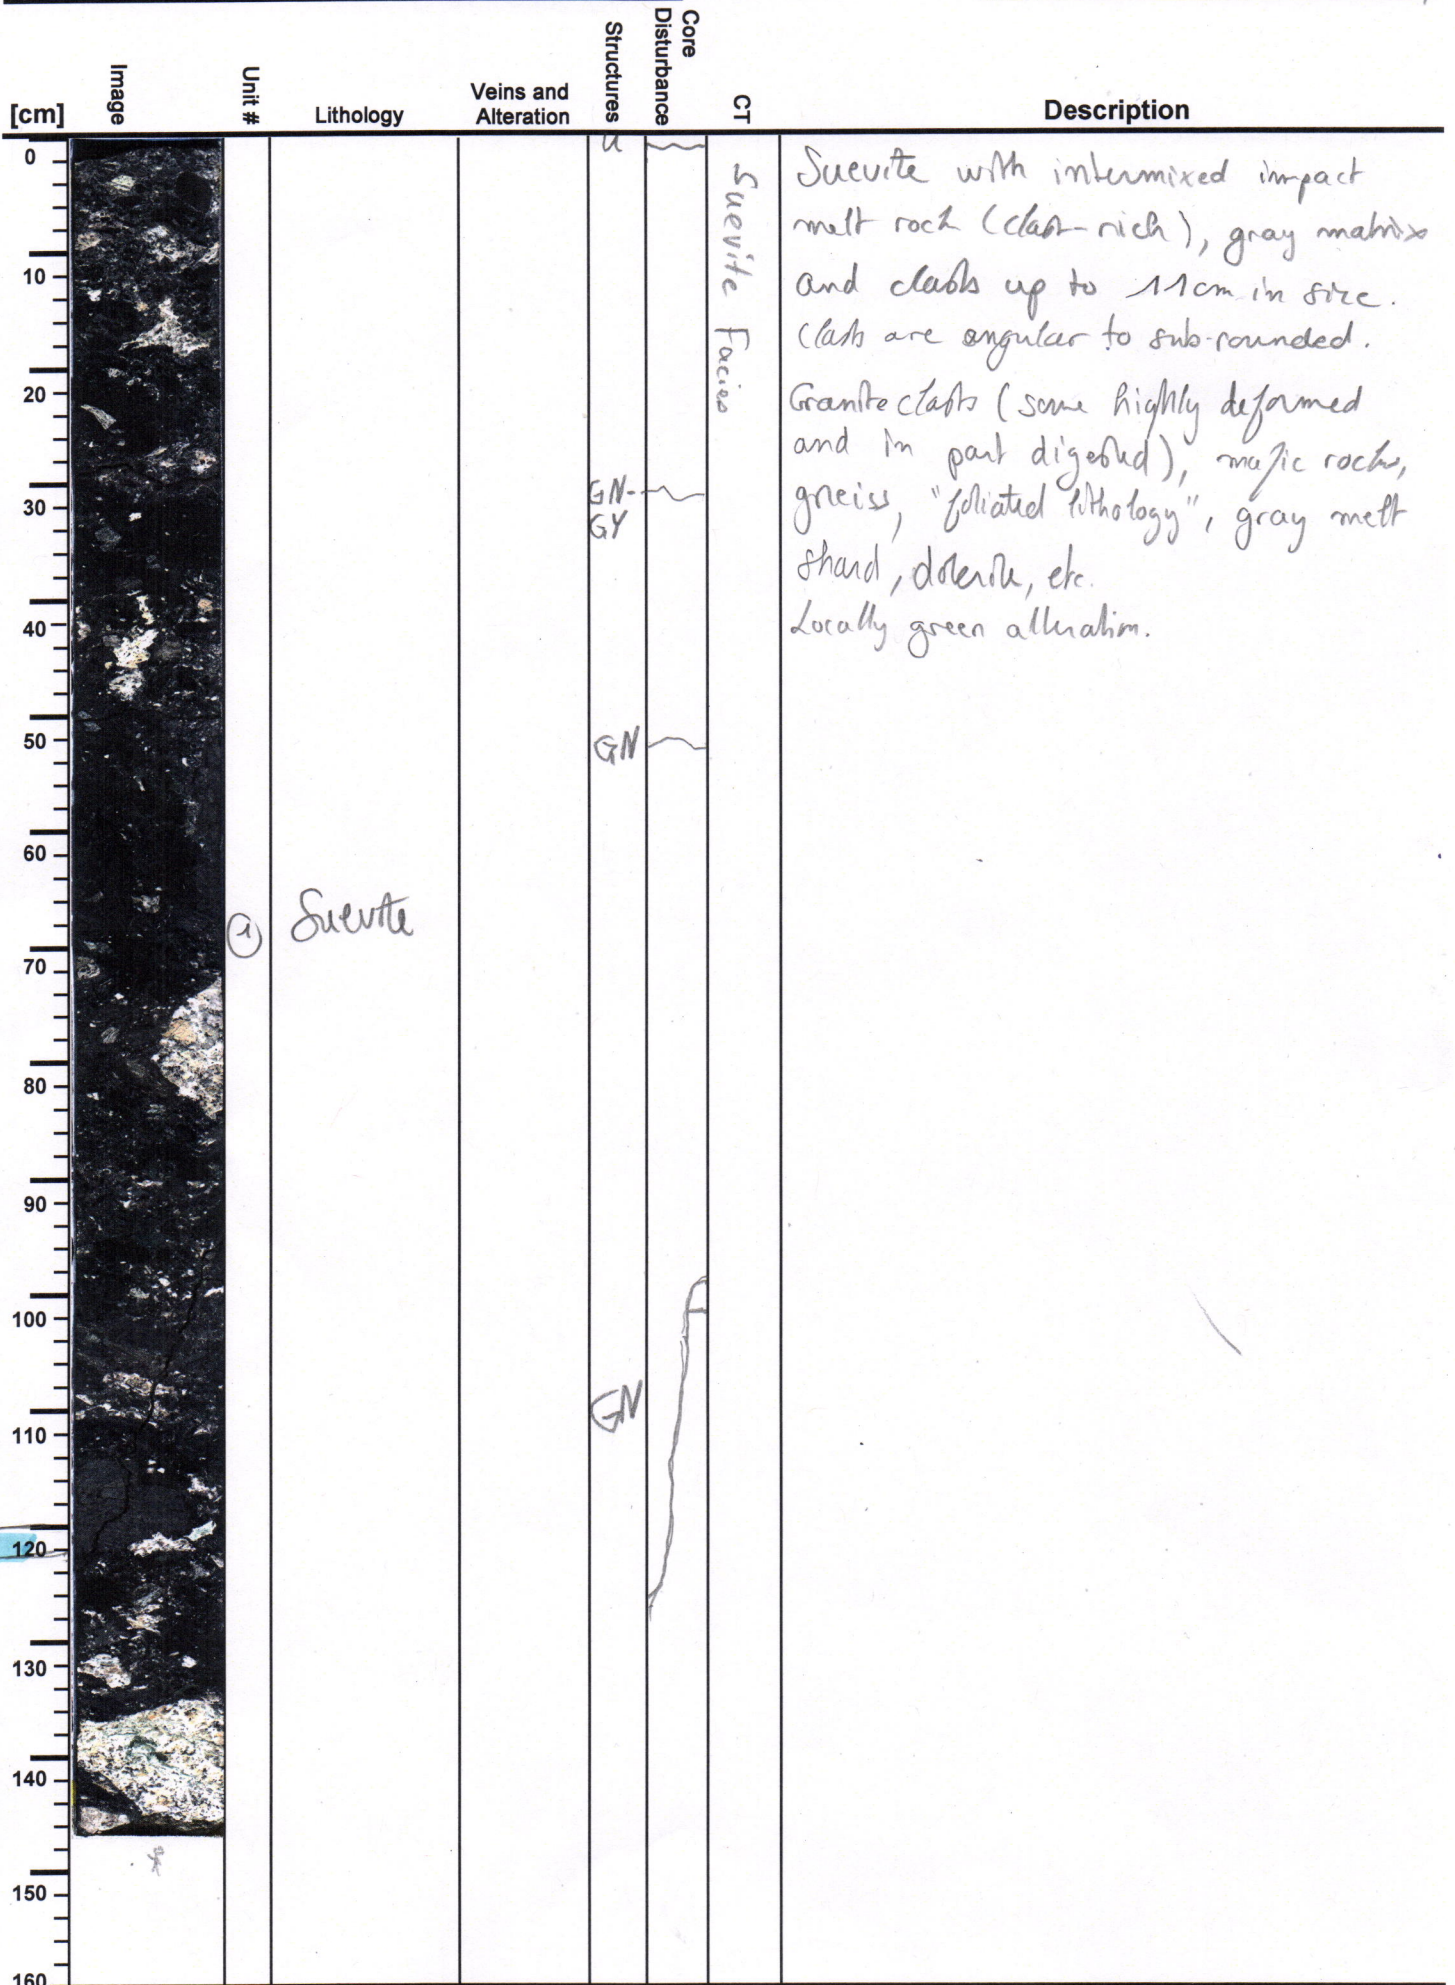 [cm]
Image
Unit #
Lithology
Veins and
Alteration
Structures
Core
Disturbance
CT
Description
0
10
20
30
40
50
60
70
80
90
100
110
120
130
140
150
160
1
Suevite
GN
GY
GN
GN
Suevite Facies
Suevite with intermixed impact
melt rock (clast-rich), gray matrix
and clasts up to 11cm in size.
Clasts are angular to sub-rounded.
Granite clasts (some highly deformed
and in part digested), mafic rocks,
gneiss, "foliated lithology", gray melt
shard, dolerite, etc.
Locally green alteration.